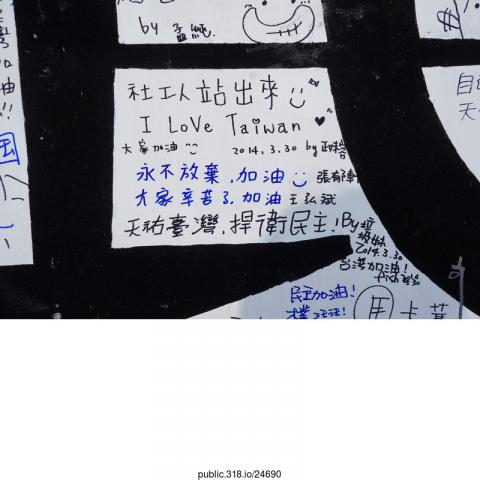 by 孟純
社工人站出來
I Love Taiwan
大家加油
2014.3.30 by 政榕
永不放棄,加油
大家辛苦了,加油 王弘斌
天祐臺灣,捍衛民主!
By 垃圾妹
2014.3.30
台灣加油!
民主加油!
馬卡
自
天
油
!!
國
public.318.io/24690